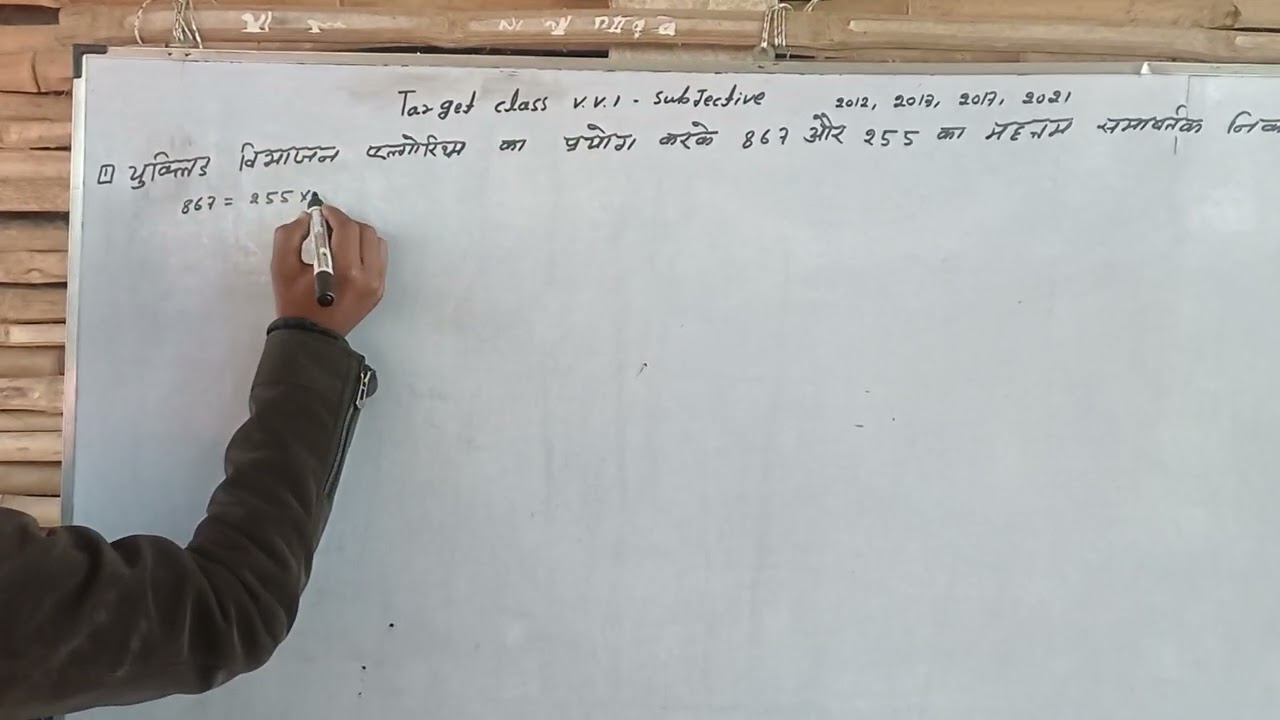 Target class V.V.I - Subjective 2012, 2013, 2017, 2021
1 युक्लिड विभाजन एल्गोरिथ्म का प्रयोग करके 867 और 255 का महत्तम समावर्तक
867 = 255 ×